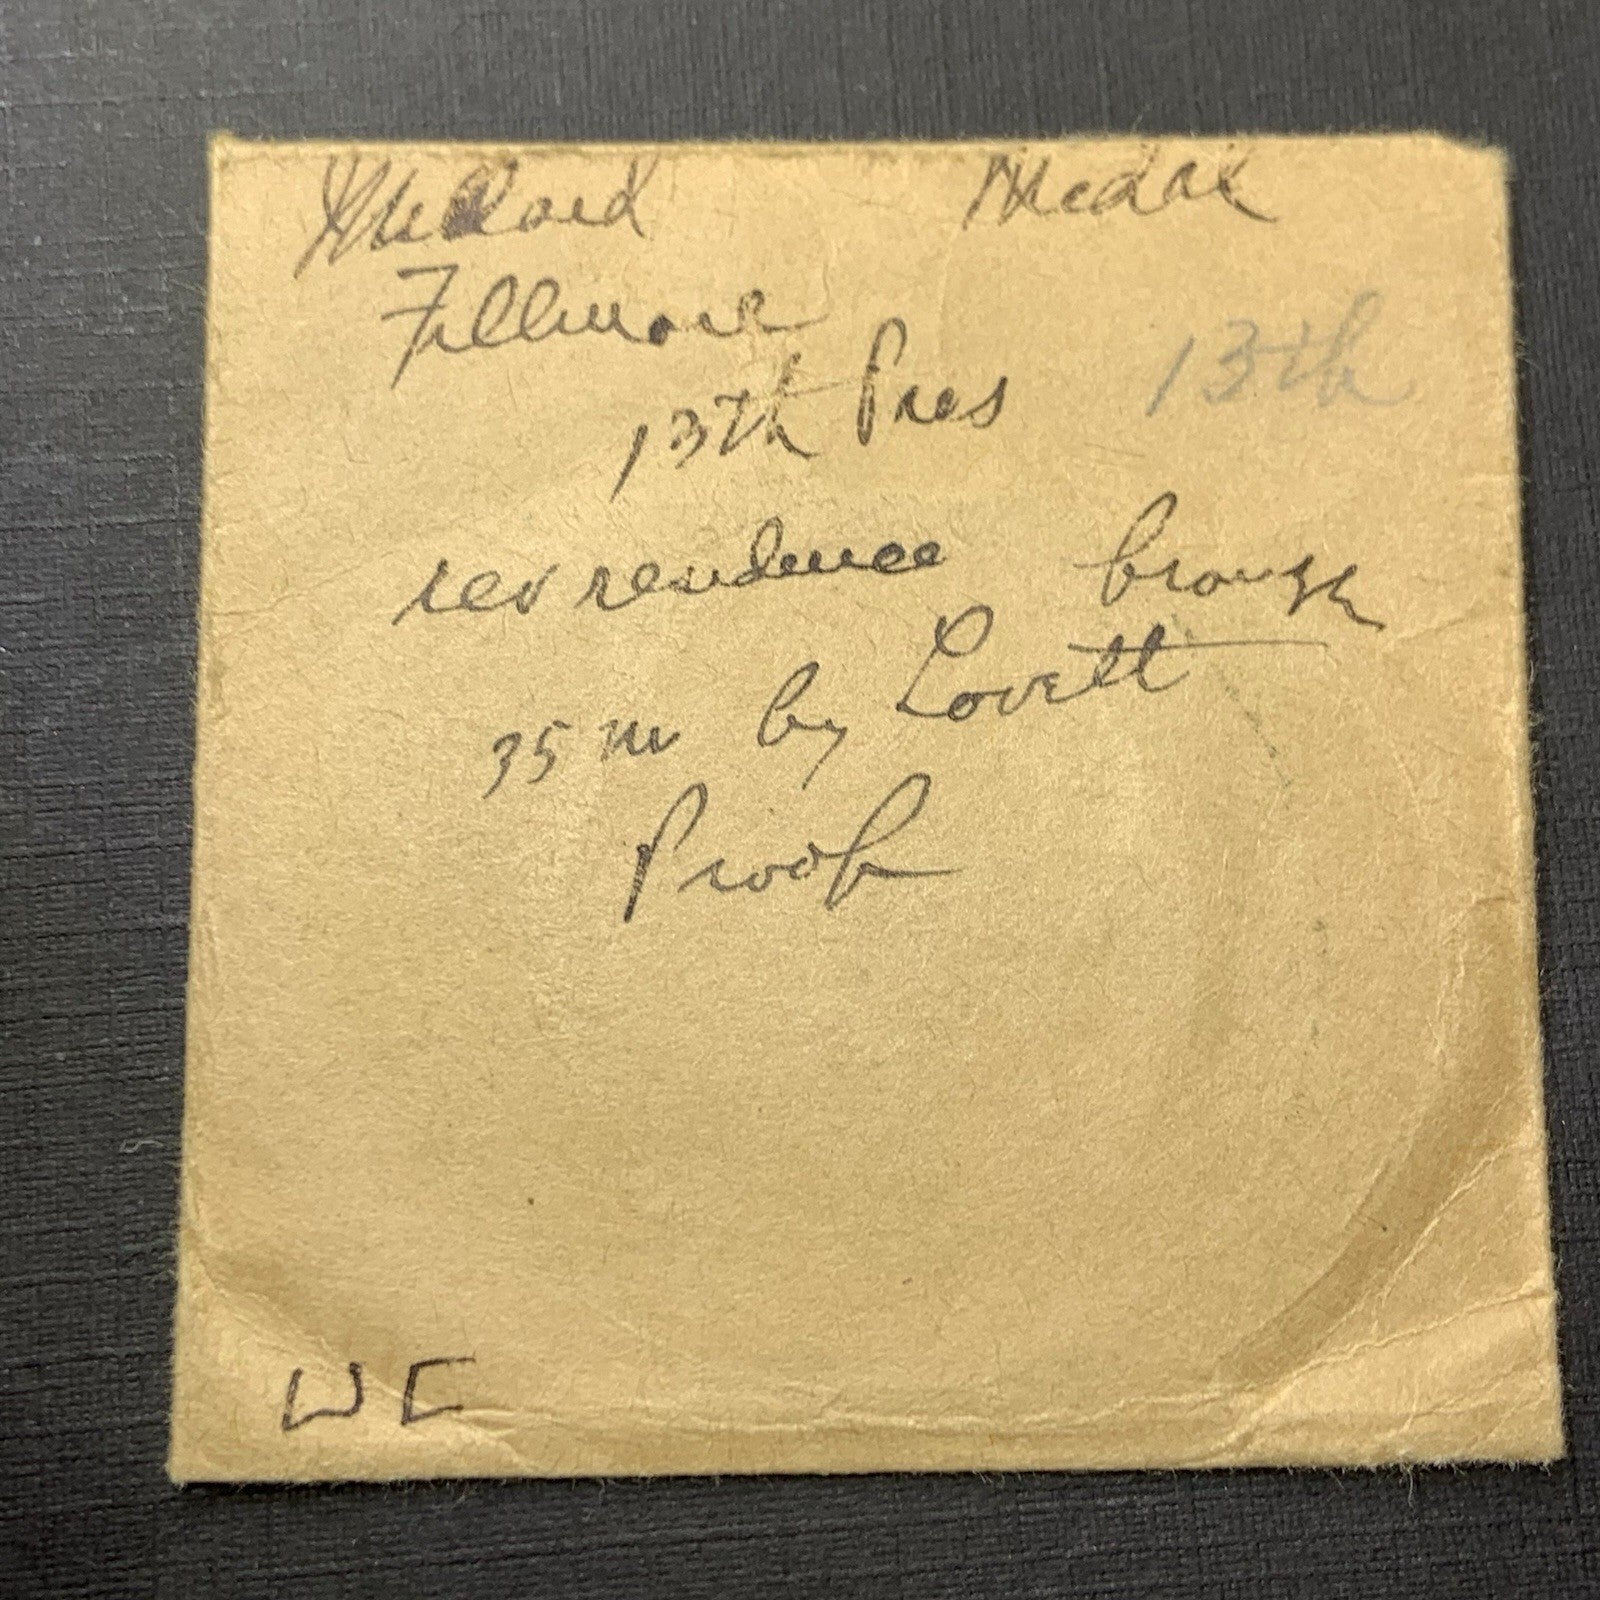 Millard Medal
Fillmore
13th Pres 13th
rev residence bronze
35 m by Lovett
Proof